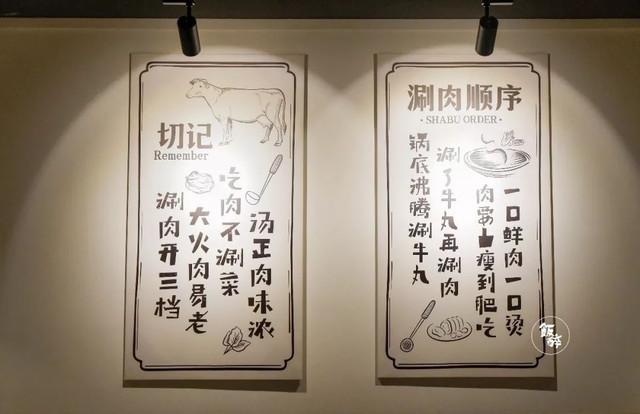 切记
Remember
涮肉开三档
大火肉易老
吃肉不涮菜
汤正肉味浓
涮肉顺序
·SHABU ORDER·
锅底沸腾涮牛丸
涮了牛丸再涮肉
肉要由瘦到肥吃
一口鲜肉一口烫
饭醉